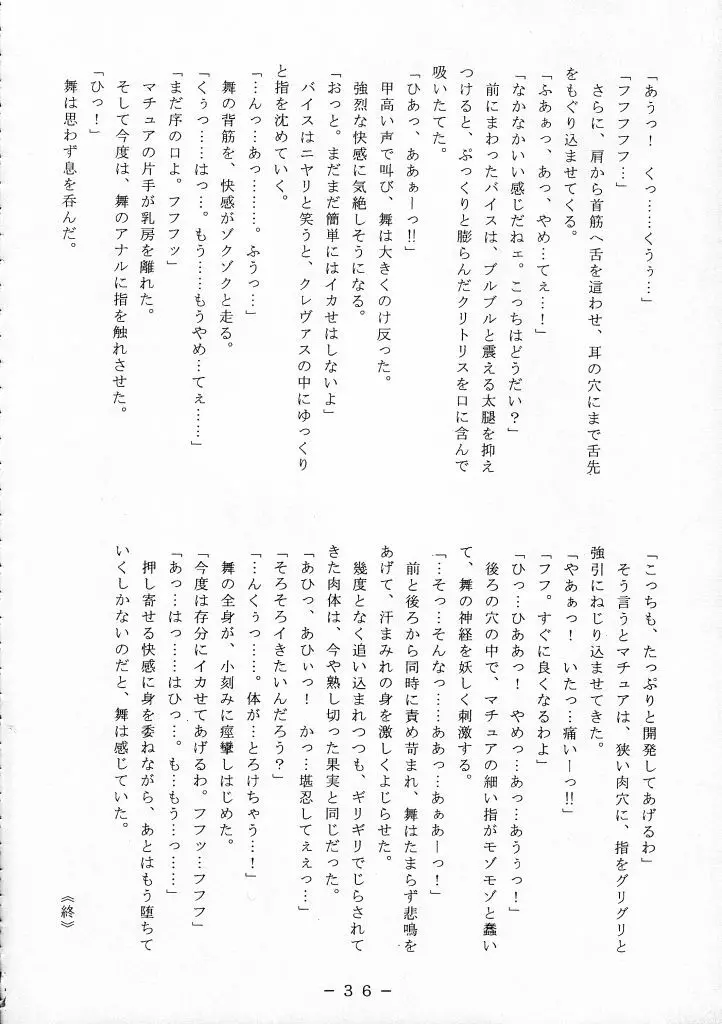 「あうっ！　くっ……くうぅ…」
「フフフフ…」
さらに、肩から首筋へ舌を這わせ、耳の穴にまで舌先
をもぐり込ませてくる。
「ふあぁっ、あっ、やめ…てぇ…！」
「なかなかいい感じだねェ。こっちはどうだい？」
前にまわったバイスは、ブルブルと震える太腿を抑え
つけると、ぷっくりと膨らんだクリトリスを口に含んで
吸いたてた。
「ひあっ、ああぁーっ!!」
甲高い声で叫び、舞は大きくのけ反った。
強烈な快感に気絶しそうになる。
「おっと。まだまだ簡単にはイカせはしないよ」
バイスはニヤリと笑うと、クレヴァスの中にゆっくり
と指を沈めていく。
「…んっ…あっ………。ふうっ…」
舞の背筋を、快感がゾクゾクと走る。
「くぅっ……はっ…。もう……もうやめ…てぇ……」
「まだ序の口よ。フフフッ」
マチュアの片手が乳房を離れた。
そして今度は、舞のアナルに指を触れさせた。
「ひっ！」
舞は思わず息を呑んだ。
「こっちも、たっぷりと開発してあげるわ」
そう言うとマチュアは、狭い肉穴に、指をグリグリと
強引にねじり込ませてきた。
「やあぁっ！　いたっ…痛いーっ!!」
「フフ。すぐに良くなるわよ」
「ひっ…ひああっ！　やめっ…あっ…あうぅっ！」
後ろの穴の中で、マチュアの細い指がモゾモゾと蠢い
て、舞の神経を妖しく刺激する。
「…そっ…そんなっ……ああっ…あぁあーっ！」
前と後ろから同時に責め苛まれ、舞はたまらず悲鳴を
あげて、汗まみれの身を激しくよじらせた。
幾度となく追い込まれつつも、ギリギリでじらされて
きた肉体は、今や熟し切った果実と同じだった。
「あひっ、あひぃっ！　かっ…堪忍してぇぇっ…」
「そろそろイきたいんだろう？」
「…んくぅっ……。体が…とろけちゃう…！」
舞の全身が、小刻みに痙攣しはじめた。
「今度は存分にイカせてあげるわ。フフッ…フフフ」
「あっ…はっ……はひっ…。も…もう…っ……」
押し寄せる快感に身を委ねながら、あとはもう堕ちて
いくしかないのだと、舞は感じていた。
《終》
－３６－